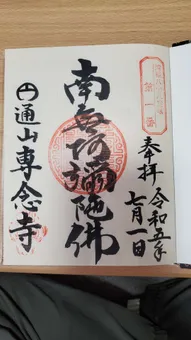 奉拝 令和五年
七月一日
南無阿彌陀佛
通山専念寺